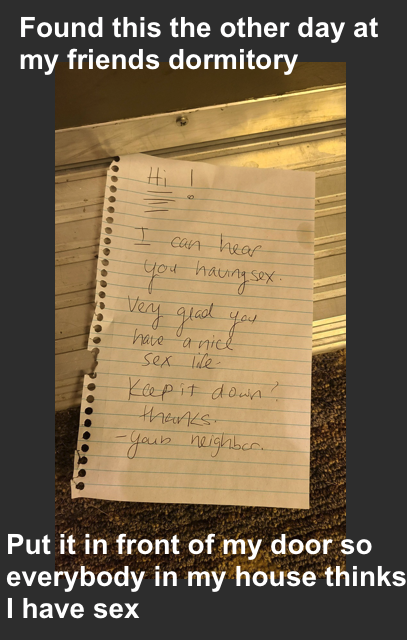 Found this the other day at
my friends dormitory
Hi !
I can hear
you having sex.
Very glad you
have a nice
sex life.
Keep it down?
thanks.
- your neighbor.
Put it in front of my door so
everybody in my house thinks
I have sex